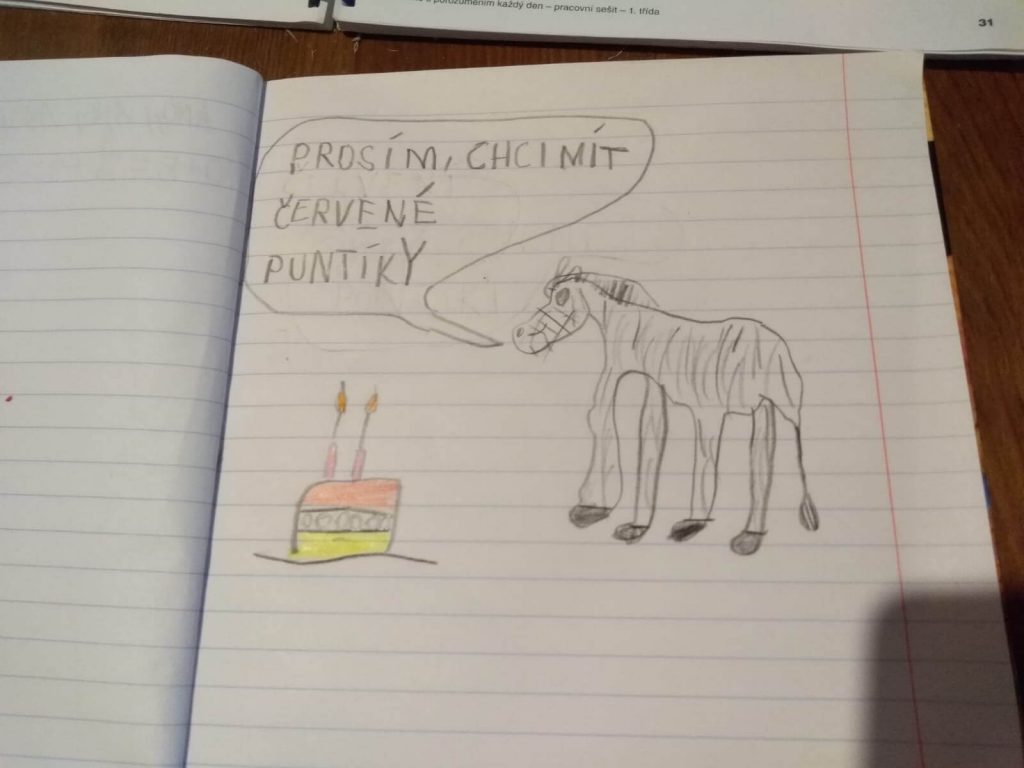 porozuměním každý den – pracovní sešit – 1. třída
31
PROSÍM, CHCI MÍT
ČERVENÉ
PUNTÍKY